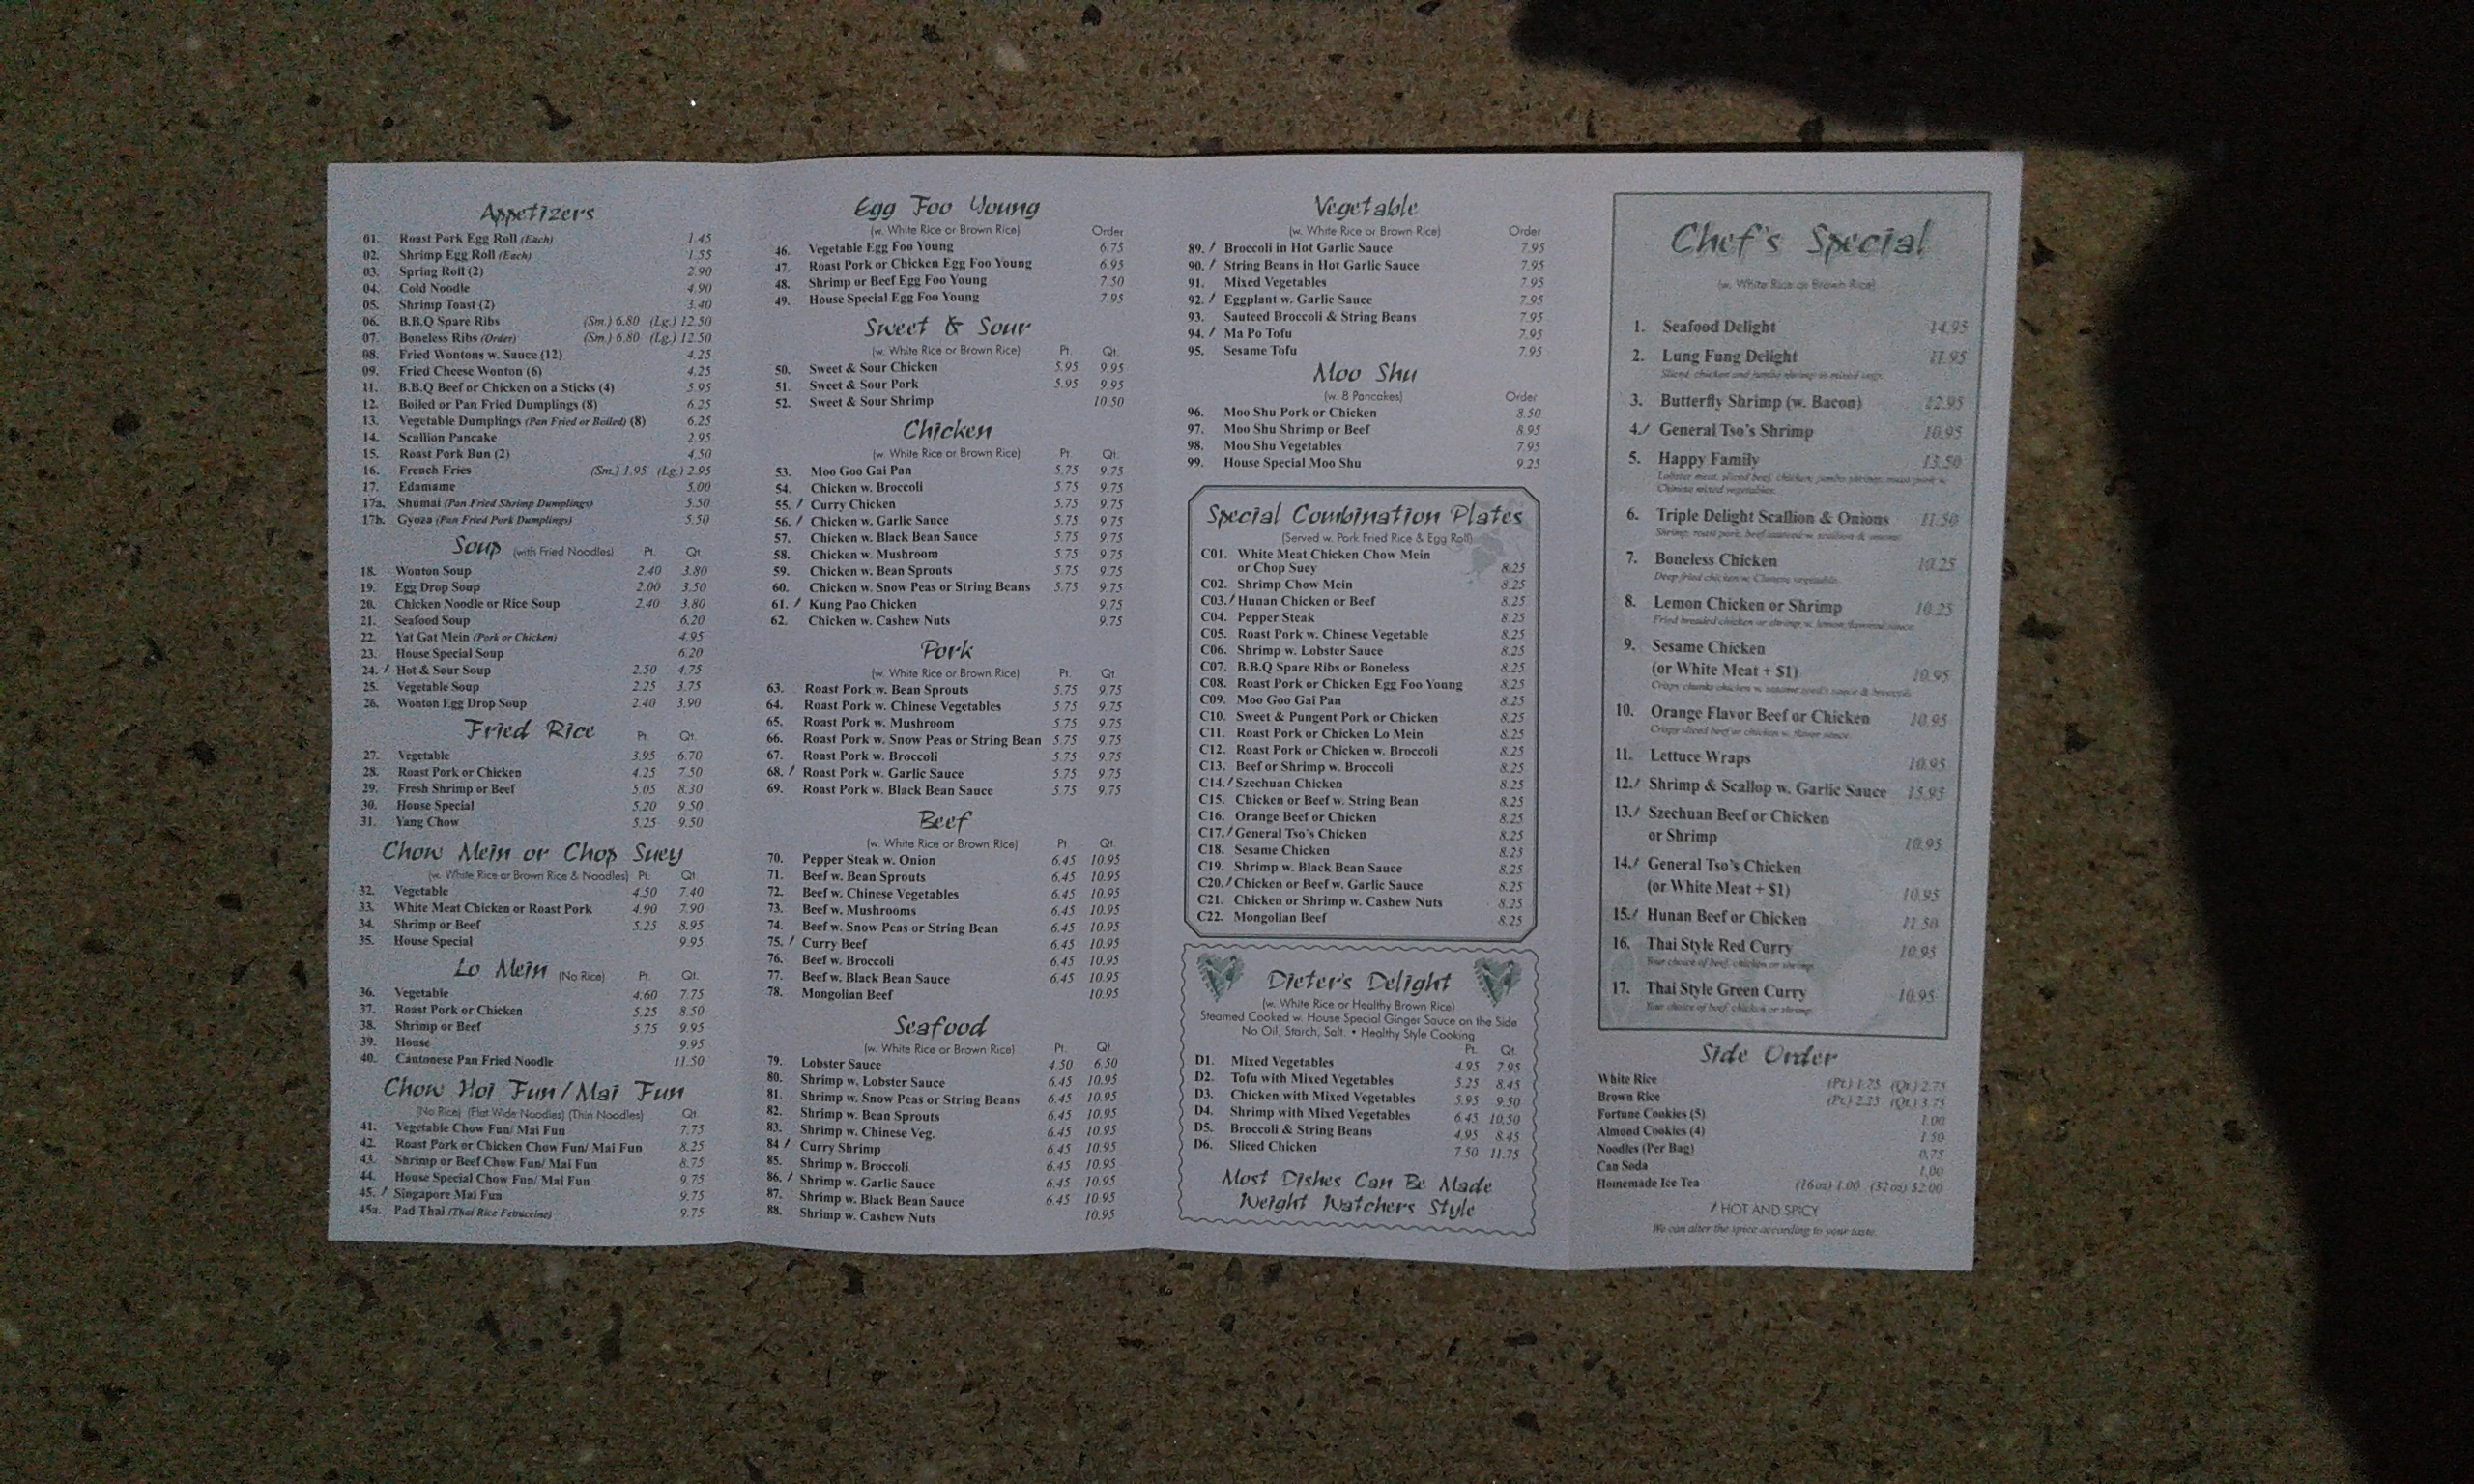 Appetizers
01. Roast Pork Egg Roll (Each) 1.45
02. Shrimp Egg Roll (Each) 1.55
03. Spring Roll (2) 2.90
04. Cold Noodle 4.90
05. Shrimp Toast (2) 3.40
06. B.B.Q Spare Ribs (Sm.) 6.80 (Lg.) 12.50
07. Boneless Ribs (Order) (Sm.) 6.80 (Lg.) 12.50
08. Fried Wontons w. Sauce (12) 4.25
09. Fried Cheese Wonton (6) 4.25
11. B.B.Q Beef or Chicken on a Sticks (4) 5.95
12. Boiled or Pan Fried Dumplings (8) 6.25
13. Vegetable Dumplings (Pan Fried or Boiled) (8) 6.25
14. Scallion Pancake 2.95
15. Roast Pork Bun (2) 4.50
16. French Fries (Sm.) 1.95 (Lg.) 2.95
17. Edamame 5.00
17a. Shumai (Pan Fried Shrimp Dumplings) 5.50
17b. Gyoza (Pan Fried Pork Dumplings) 5.50
Soup (with Fried Noodles) Pt. Qt.
18. Wonton Soup 2.40 3.80
19. Egg Drop Soup 2.00 3.50
20. Chicken Noodle or Rice Soup 2.40 3.80
21. Seafood Soup 6.20
22. Yat Gat Mein (Pork or Chicken) 4.95
23. House Special Soup 6.20
24. Hot & Sour Soup 2.50 4.75
25. Vegetable Soup 2.25 3.75
26. Wonton Egg Drop Soup 2.40 3.90
Fried Rice Pt. Qt.
27. Vegetable 3.95 6.70
28. Roast Pork or Chicken 4.25 7.50
29. Fresh Shrimp or Beef 5.05 8.30
30. House Special 5.20 9.50
31. Yang Chow 5.25 9.50
Chow Mein or Chop Suey
(w. White Rice or Brown Rice & Noodles) Pt. Qt.
32. Vegetable 4.50 7.40
33. White Meat Chicken or Roast Pork 4.90 7.90
34. Shrimp or Beef 5.25 8.95
35. House Special 9.95
Lo Mein (No Rice) Pt. Qt.
36. Vegetable 4.60 7.75
37. Roast Pork or Chicken 5.25 8.50
38. Shrimp or Beef 5.75 9.95
39. House 9.95
40. Cantonese Pan Fried Noodle 11.50
Chow Hoi Fun/Mai Fun
(No Rice) (Flat Wide Noodles) (Thin Noodles) Qt.
41. Vegetable Chow Fun/ Mai Fun 7.75
42. Roast Pork or Chicken Chow Fun/ Mai Fun 8.25
43. Shrimp or Beef Chow Fun/ Mai Fun 8.75
44. House Special Chow Fun/ Mai Fun 9.75
45. Singapore Mai Fun 9.75
45a. Pad Thai (Thai Rice Fettuccine) 9.75
Egg Foo Young
(w. White Rice or Brown Rice) Order
46. Vegetable Egg Foo Young 6.75
47. Roast Pork or Chicken Egg Foo Young 6.95
48. Shrimp or Beef Egg Foo Young 7.50
49. House Special Egg Foo Young 7.95
Sweet & Sour
(w. White Rice or Brown Rice) Pt. Qt.
50. Sweet & Sour Chicken 5.95 9.95
51. Sweet & Sour Pork 5.95 9.95
52. Sweet & Sour Shrimp 10.50
Chicken
(w. White Rice or Brown Rice) Pt. Qt.
53. Moo Goo Gai Pan 5.75 9.75
54. Chicken w. Broccoli 5.75 9.75
55. Curry Chicken 5.75 9.75
56. Chicken w. Garlic Sauce 5.75 9.75
57. Chicken w. Black Bean Sauce 5.75 9.75
58. Chicken w. Mushroom 5.75 9.75
59. Chicken w. Bean Sprouts 5.75 9.75
60. Chicken w. Snow Peas or String Beans 5.75 9.75
61. Kung Pao Chicken 9.75
62. Chicken w. Cashew Nuts 9.75
Pork
(w. White Rice or Brown Rice) Pt. Qt.
63. Roast Pork w. Bean Sprouts 5.75 9.75
64. Roast Pork w. Chinese Vegetables 5.75 9.75
65. Roast Pork w. Mushroom 5.75 9.75
66. Roast Pork w. Snow Peas or String Bean 5.75 9.75
67. Roast Pork w. Broccoli 5.75 9.75
68. Roast Pork w. Garlic Sauce 5.75 9.75
69. Roast Pork w. Black Bean Sauce 5.75 9.75
Beef
(w. White Rice or Brown Rice) Pt Qt.
70. Pepper Steak w. Onion 6.45 10.95
71. Beef w. Bean Sprouts 6.45 10.95
72. Beef w. Chinese Vegetables 6.45 10.95
73. Beef w. Mushrooms 6.45 10.95
74. Beef w. Snow Peas or String Bean 6.45 10.95
75. Curry Beef 6.45 10.95
76. Beef w. Broccoli 6.45 10.95
77. Beef w. Black Bean Sauce 6.45 10.95
78. Mongolian Beef 10.95
Seafood
(w. White Rice or Brown Rice) Pt. Qt.
79. Lobster Sauce 4.50 6.50
80. Shrimp w. Lobster Sauce 6.45 10.95
81. Shrimp w. Snow Peas or String Beans 6.45 10.95
82. Shrimp w. Bean Sprouts 6.45 10.95
83. Shrimp w. Chinese Veg. 6.45 10.95
84 Curry Shrimp 6.45 10.95
85. Shrimp w. Broccoli 6.45 10.95
86. Shrimp w. Garlic Sauce 6.45 10.95
87. Shrimp w. Black Bean Sauce 6.45 10.95
88. Shrimp w. Cashew Nuts 10.95
Vegetable
(w. White Rice or Brown Rice) Order
89. Broccoli in Hot Garlic Sauce 7.95
90. String Beans in Hot Garlic Sauce 7.95
91. Mixed Vegetables 7.95
92. Eggplant w. Garlic Sauce 7.95
93. Sauteed Broccoli & String Beans 7.95
94. Ma Po Tofu 7.95
95. Sesame Tofu 7.95
Moo Shu
(w. 8 Pancakes) Order
96. Moo Shu Pork or Chicken 8.50
97. Moo Shu Shrimp or Beef 8.95
98. Moo Shu Vegetables 7.95
99. House Special Moo Shu 9.25
Special Combination Plates
(Served w. Pork Fried Rice & Egg Roll)
C01. White Meat Chicken Chow Mein
or Chop Suey 8.25
C02. Shrimp Chow Mein 8.25
C03. Hunan Chicken or Beef 8.25
C04. Pepper Steak 8.25
C05. Roast Pork w. Chinese Vegetable 8.25
C06. Shrimp w. Lobster Sauce 8.25
C07. B.B.Q Spare Ribs or Boneless 8.25
C08. Roast Pork or Chicken Egg Foo Young 8.25
C09. Moo Goo Gai Pan 8.25
C10. Sweet & Pungent Pork or Chicken 8.25
C11. Roast Pork or Chicken Lo Mein 8.25
C12. Roast Pork or Chicken w. Broccoli 8.25
C13. Beef or Shrimp w. Broccoli 8.25
C14. Szechuan Chicken 8.25
C15. Chicken or Beef w. String Bean 8.25
C16. Orange Beef or Chicken 8.25
C17. General Tso's Chicken 8.25
C18. Sesame Chicken 8.25
C19. Shrimp w. Black Bean Sauce 8.25
C20. Chicken or Beef w. Garlic Sauce 8.25
C21. Chicken or Shrimp w. Cashew Nuts 8.25
C22. Mongolian Beef 8.25
Dieter's Delight
(w. White Rice or Healthy Brown Rice)
Steamed Cooked w. House Special Ginger Sauce on the Side
No Oil, Starch, Salt. • Healthy Style Cooking
Pt. Qt.
D1. Mixed Vegetables 4.95 7.95
D2. Tofu with Mixed Vegetables 5.25 8.45
D3. Chicken with Mixed Vegetables 5.95 9.50
D4. Shrimp with Mixed Vegetables 6.45 10.50
D5. Broccoli & String Beans 4.95 8.45
D6. Sliced Chicken 7.50 11.75
Most Dishes Can Be Made
Weight Watchers Style
Chef's Special
(w. White Rice or Brown Rice)
1. Seafood Delight 14.95
2. Lung Fung Delight 11.95
Sliced chicken and jumbo shrimp in mixed vege.
3. Butterfly Shrimp (w. Bacon) 12.95
4. General Tso's Shrimp 10.95
5. Happy Family 13.50
Lobster meat, sliced beef, chicken, jumbo shrimp, roast pork w.
Chinese mixed vegetables.
6. Triple Delight Scallion & Onions 11.50
Shrimp, roast pork, beef sauteed w. scallion & onions
7. Boneless Chicken 10.25
Deep fried chicken w. Chinese vegetable.
8. Lemon Chicken or Shrimp 10.25
Fried breaded chicken or shrimp w. lemon flavored sauce
9. Sesame Chicken
(or White Meat + $1) 10.95
Crispy chunks chicken w. sesame seed's sauce & broccoli
10. Orange Flavor Beef or Chicken 10.95
Crispy sliced beef or chicken w. flavor sauce.
11. Lettuce Wraps 10.95
12. Shrimp & Scallop w. Garlic Sauce 15.95
13. Szechuan Beef or Chicken
or Shrimp 10.95
14. General Tso's Chicken
(or White Meat + $1) 10.95
15. Hunan Beef or Chicken 11.50
16. Thai Style Red Curry 10.95
Your choice of beef, chicken or shrimp
17. Thai Style Green Curry 10.95
Your choice of beef, chicken or shrimp
Side Order
White Rice (Pt.) 1.75 (Qt.) 2.75
Brown Rice (Pt.) 2.25 (Qt.) 3.75
Fortune Cookies (5) 1.00
Almond Cookies (4) 1.50
Noodles (Per Bag) 0.75
Can Soda 1.00
Homemade Ice Tea (16 oz) 1.00 (32 oz) $2.00
HOT AND SPICY
We can alter the spice according to your taste.